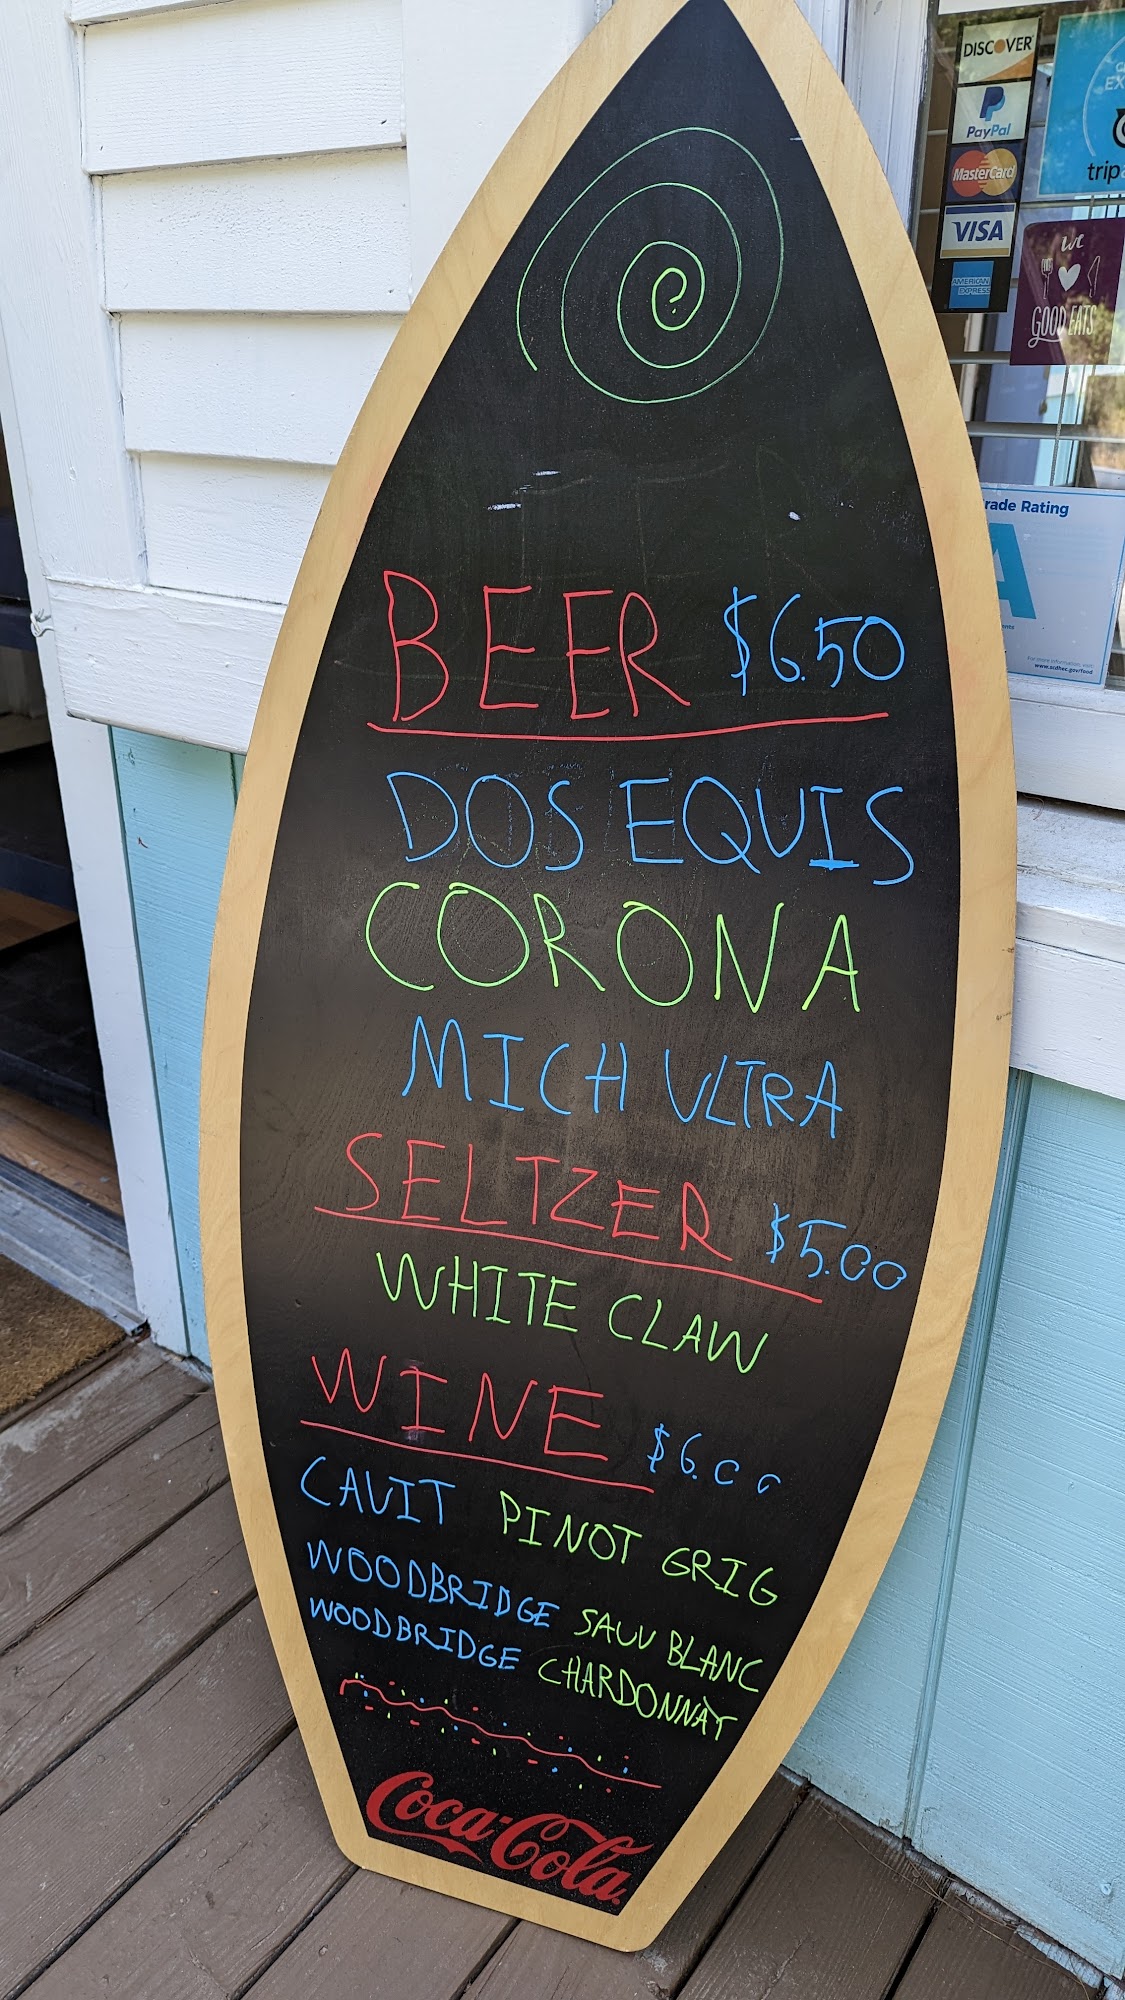 DISCOVER
PayPal
MasterCard
VISA
AMERICAN EXPRESS
trip
we
GOOD EATS
rade Rating
A
For more information, visit:
www.scdhec.gov/food
BEER $6.50
DOS EQUIS
CORONA
MICH ULTRA
SELTZER $5.00
WHITE CLAW
WINE $6.00
CAVIT PINOT GRIG
WOODBRIDGE SAUV BLANC
WOODBRIDGE CHARDONNAY
Coca-Cola